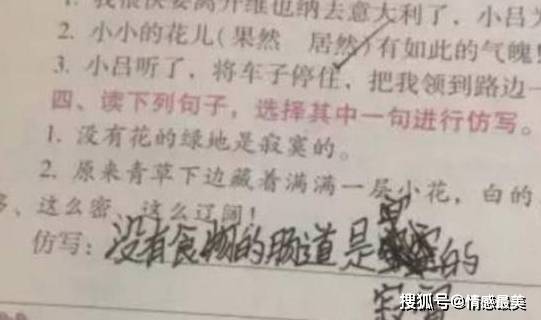 1. 我很快要离开维也纳去意大利了，小吕为
2. 小小的花儿（果然 居然）有如此的气魄！
3. 小吕听了，将车子停住，把我领到路边一
四、读下列句子，选择其中一句进行仿写。
1. 没有花的绿地是寂寞的。
2. 原来青草下边藏着满满一层小花，白的、
多、这么密、这么辽阔！
仿写：没有食物的肠道是空的
寂寞
搜狐号@情感最美